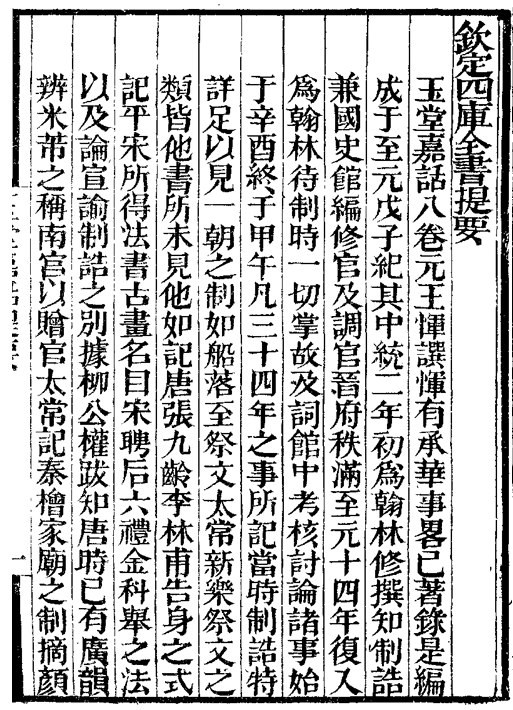 欽定四庫全書提要
玉堂嘉話八卷元王惲譔惲有承華事畧已著錄是編
成于至元戊子紀其中統二年初爲翰林修撰知制誥
兼國史館編修官及調官晉府秩滿至元十四年復入
爲翰林待制時一切掌故及詞館中考核討論諸事始
于辛酉終于甲午凡三十四年之事所記當時制誥特
詳足以見一朝之制如船落至祭文太常新樂祭文之
類皆他書所未見他如記唐張九齡李林甫告身之式
記平宋所得法書古畫名目宋聘后六禮金科舉之法
以及論宣諭制誥之別據柳公權跋知唐時已有廣韻
辨米芾之稱南宮以贈官太常記秦檜家廟之制摘顏
一